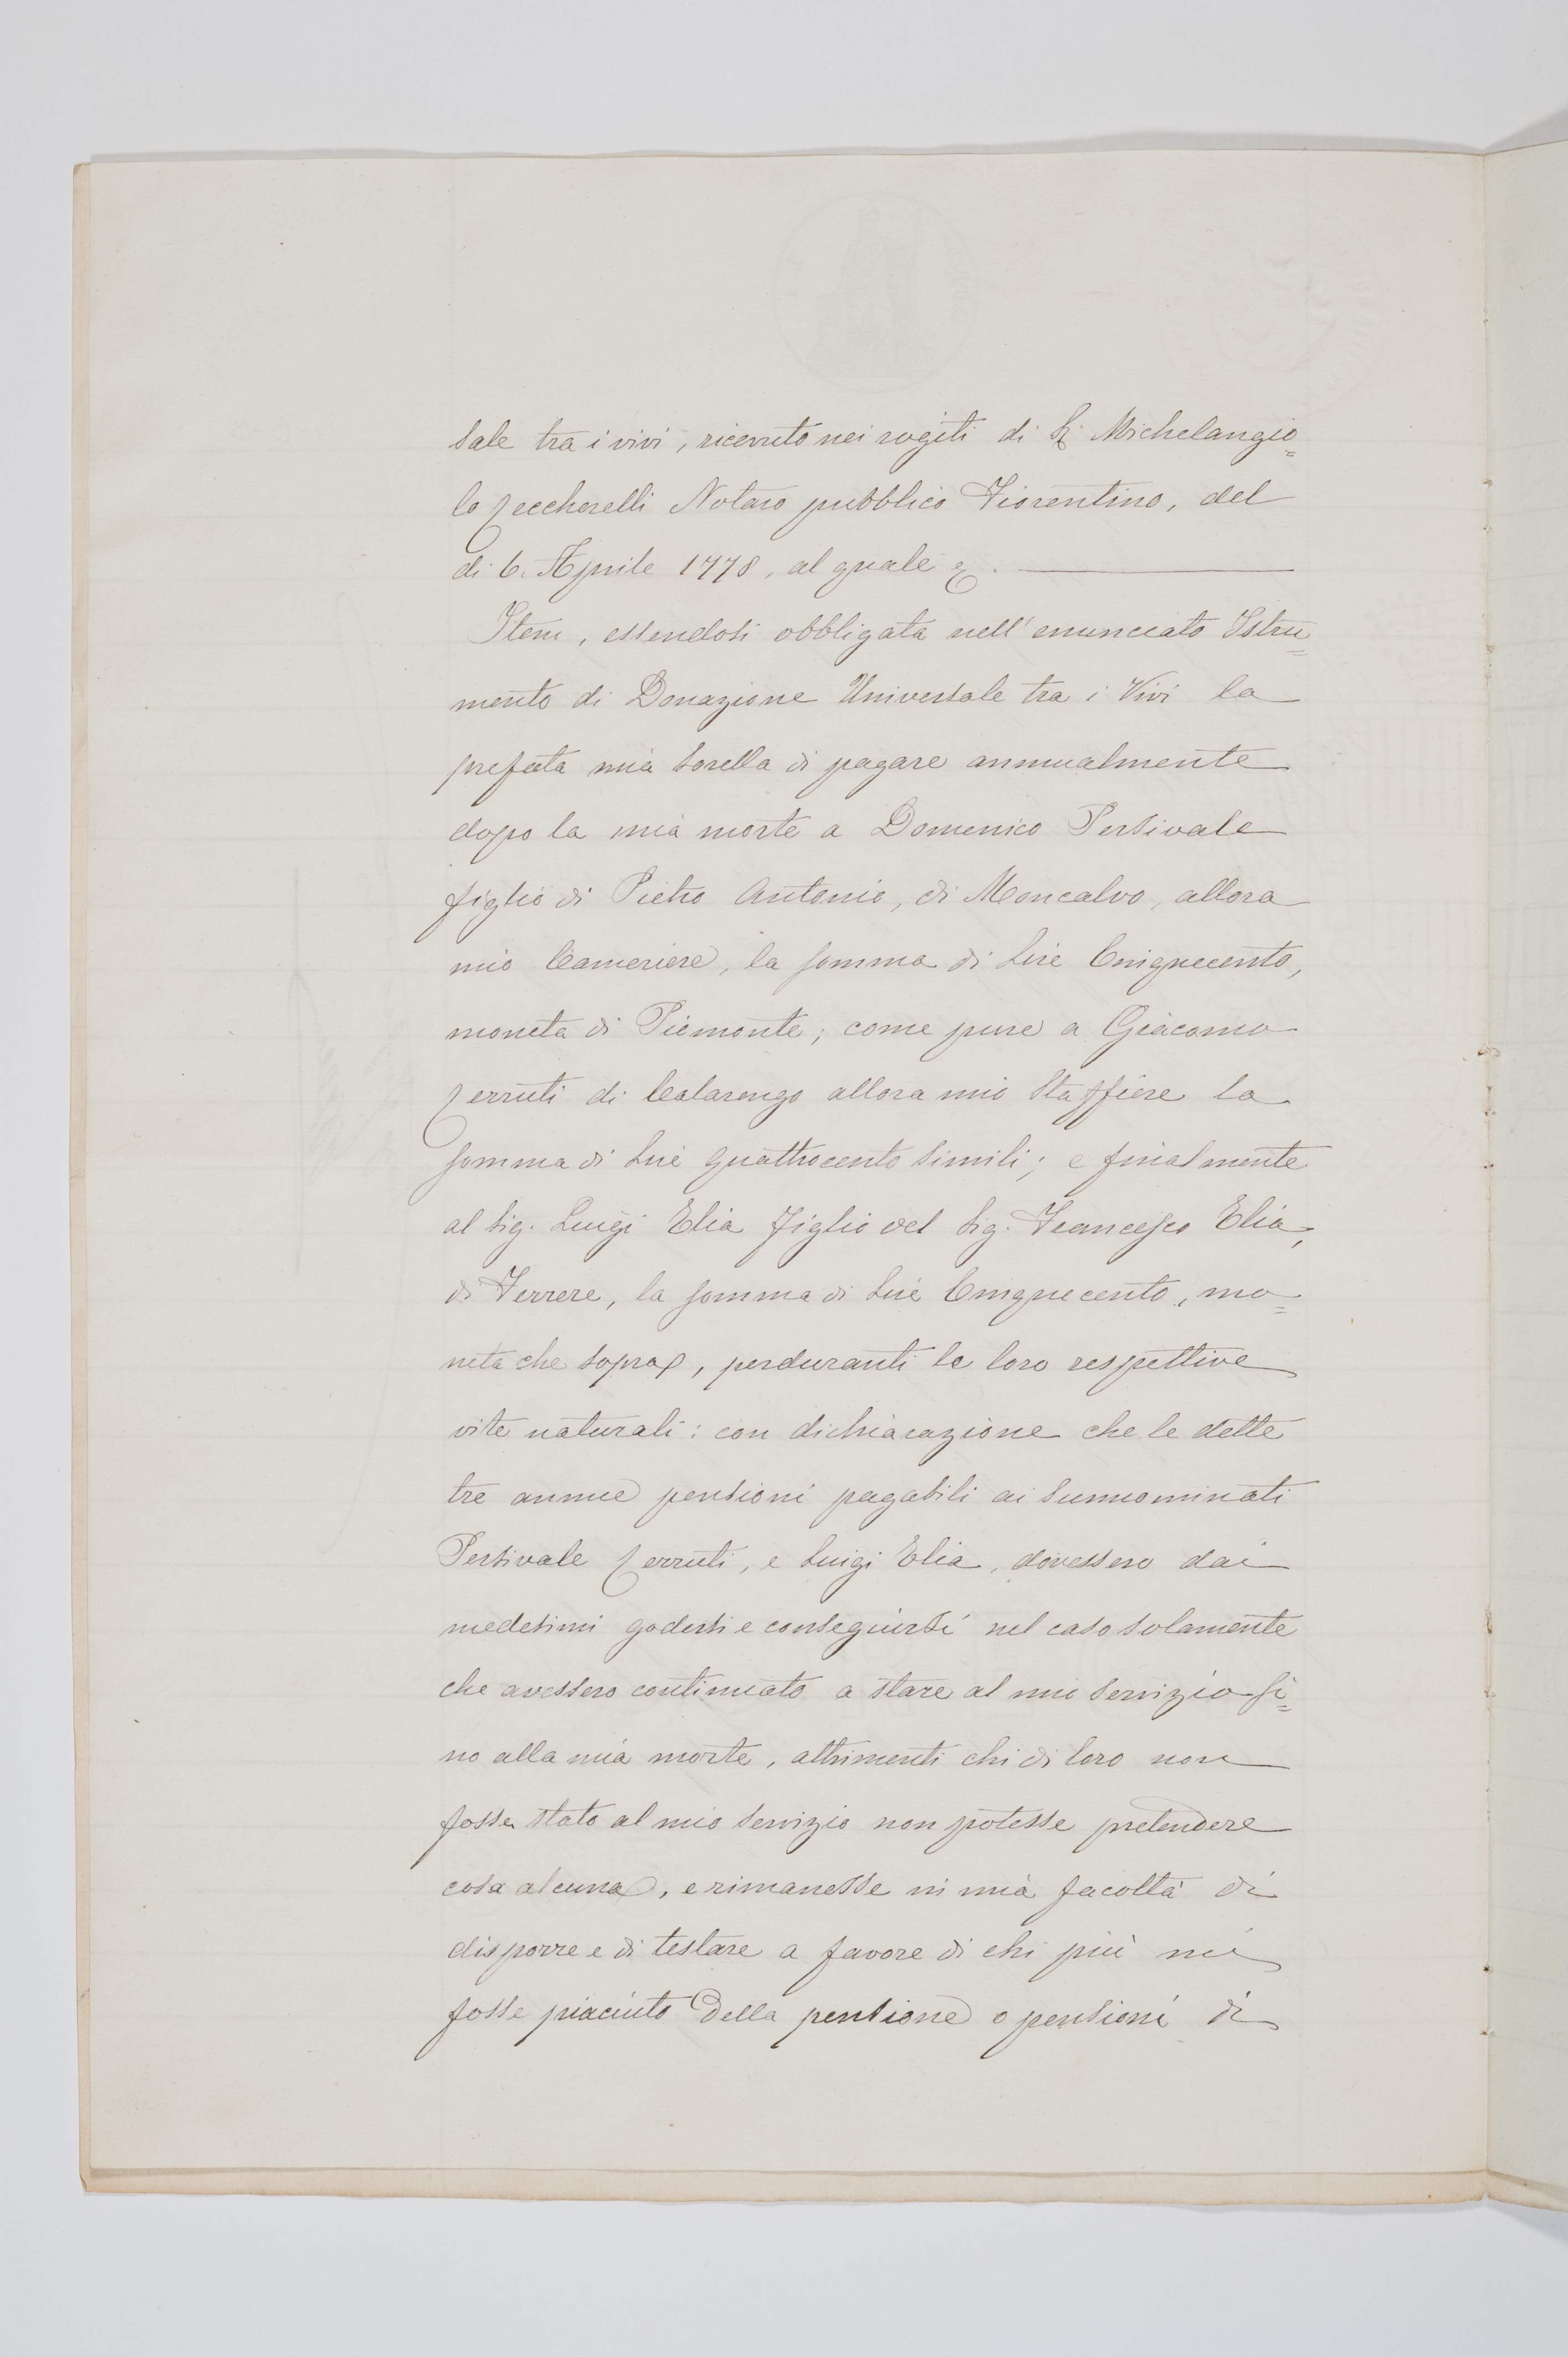 sale tra i vivi, ricevuto nei rogiti di Sr. Michelangio=
lo Ceccherelli Notaro pubblico Fiorentino, del
dì 6. Aprile 1778, al quale &.
Item, essendosi obbligata nell' enunciato Istru=
mento di Donazione Universale tra i Vivi la
prefata mia Sorella di pagare annualmente
dopo la mia morte a Domenico Persivale
figlio di Pietro Antonio, di Moncalvo, allora
mio Cameriere, la somma di Lire Cinquecento,
moneta di Piemonte; come pure a Giacomo
Cerruti di Calarengo allora mio Staffiere la
somma di Lire quattrocento simili; e finalmente
al Sig. Luigi Elia figlio del Sig. Francesco Elia,
di Ferrere, la somma di Lire Cinquecento, mo=
neta che sopra, perduranti le loro respettive
vite naturali: con dichiarazione che le dette
tre annue pensioni pagabili ai sunnominati
Persivale Cerruti, e Luigi Elia, dovessero dai
medesimi godersi e conseguirsi nel caso solamente
che avessero continuato a stare al mio servizio fi=
no alla mia morte, altrimenti chi di loro non
fosse stato al mio servizio non potesse pretendere
cosa alcuna, e rimanesse in mia facoltà di
disporre e di testare a favore di chi più mi
fosse piaciuto della pensione o pensioni di